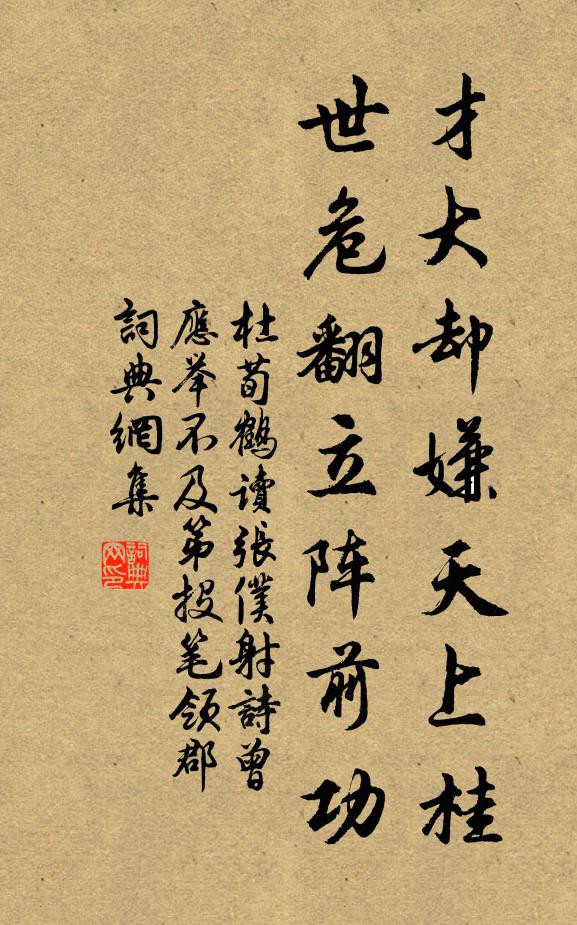 才大却嫌天上桂
世危翻立阵前功
杜荀鶴讀張僕射詩曾
應举不及第投笔領郡
詞典網集
詞典
网印